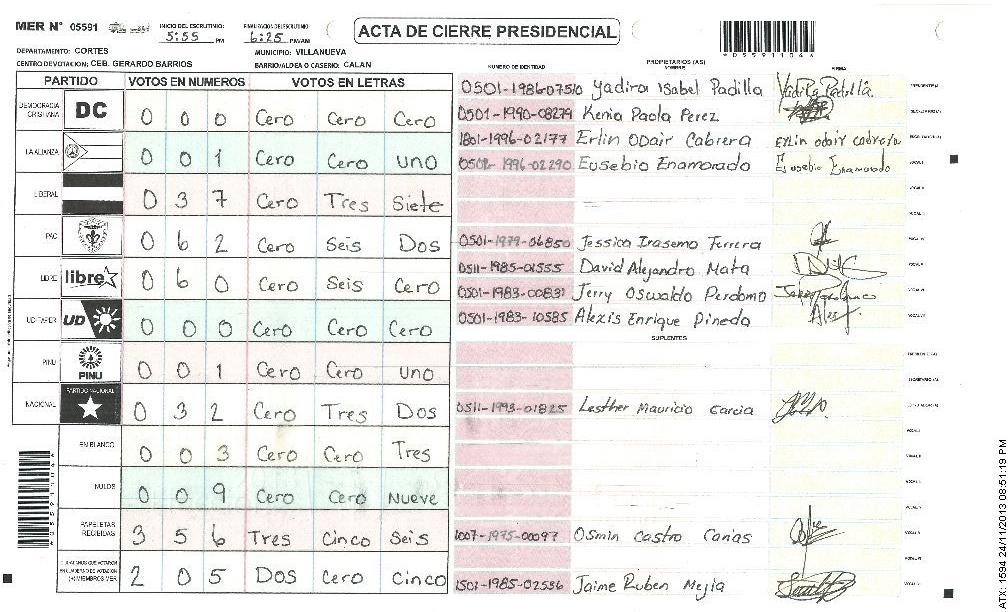 MER N° 05591
INICIO DEL ESCRUTINIO:
5:55 PM
FINALIZACION DEL ESCRUTINIO:
6:25 PM/AM
ACTA DE CIERRE PRESIDENCIAL
DEPARTAMENTO: CORTES
MUNICIPIO: VILLANUEVA
CENTRO DE VOTACION: CEB. GERARDO BARRIOS
BARRIO/ALDEA O CASERIO: CALAN
PARTIDO VOTOS EN NUMEROS VOTOS EN LETRAS
DEMOCRACIA CRISTIANA DC 0 0 0 Cero Cero Cero
LA ALIANZA 0 0 1 Cero Cero uno
LIBERAL 0 3 7 Cero Tres Siete
PAC 0 6 2 Cero Seis Dos
LIBRE libre 0 6 0 Cero Seis Cero
UD-FAPER UD 0 0 0 Cero Cero Cero
PINU PINU 0 0 1 Cero Cero uno
NACIONAL PARTIDO NACIONAL 0 3 2 Cero Tres Dos
EN BLANCO 0 0 3 Cero Cero Tres
NULOS 0 0 9 Cero Cero Nueve
PAPELETAS RECIBIDAS 3 5 6 Tres Cinco Seis
CIUDADANOS QUE VOTARON EN CUADERNO DE VOTACION (+) MIEMBROS MER 2 0 5 Dos Cero Cinco
PROPIETARIOS (AS)
NUMERO DE IDENTIDAD NOMBRE FIRMA
0501-1986-07510 Yadira Isabel Padilla Yadira Padilla
0501-1990-08279 Kenia Paola Perez
1801-1996-02177 Erlin Odair Cabrera Erlin odair cabrera
0502-1996-02290 Eusebio Enamorado Eusebio Enamorado
0501-1979-06850 Jessica Irasema Ferrera
0511-1985-01555 David Alejandro Mata
0501-1983-00831 Jerry Oswaldo Perdomo
0501-1983-10585 Alexis Enrique Pineda
SUPLENTES
0511-1993-01825 Lesther Mauricio Garcia
1007-1975-00097 Osmin Castro Canas
1502-1985-02536 Jaime Ruben Mejia
ATX: 1594 24/11/2013 08:51:19 PM